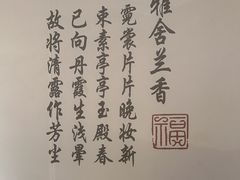 雅舍兰香
霓裳片片晚妆新
束素亭亭玉殿春
已向丹霞生浅晕
故将清露作芳尘
福